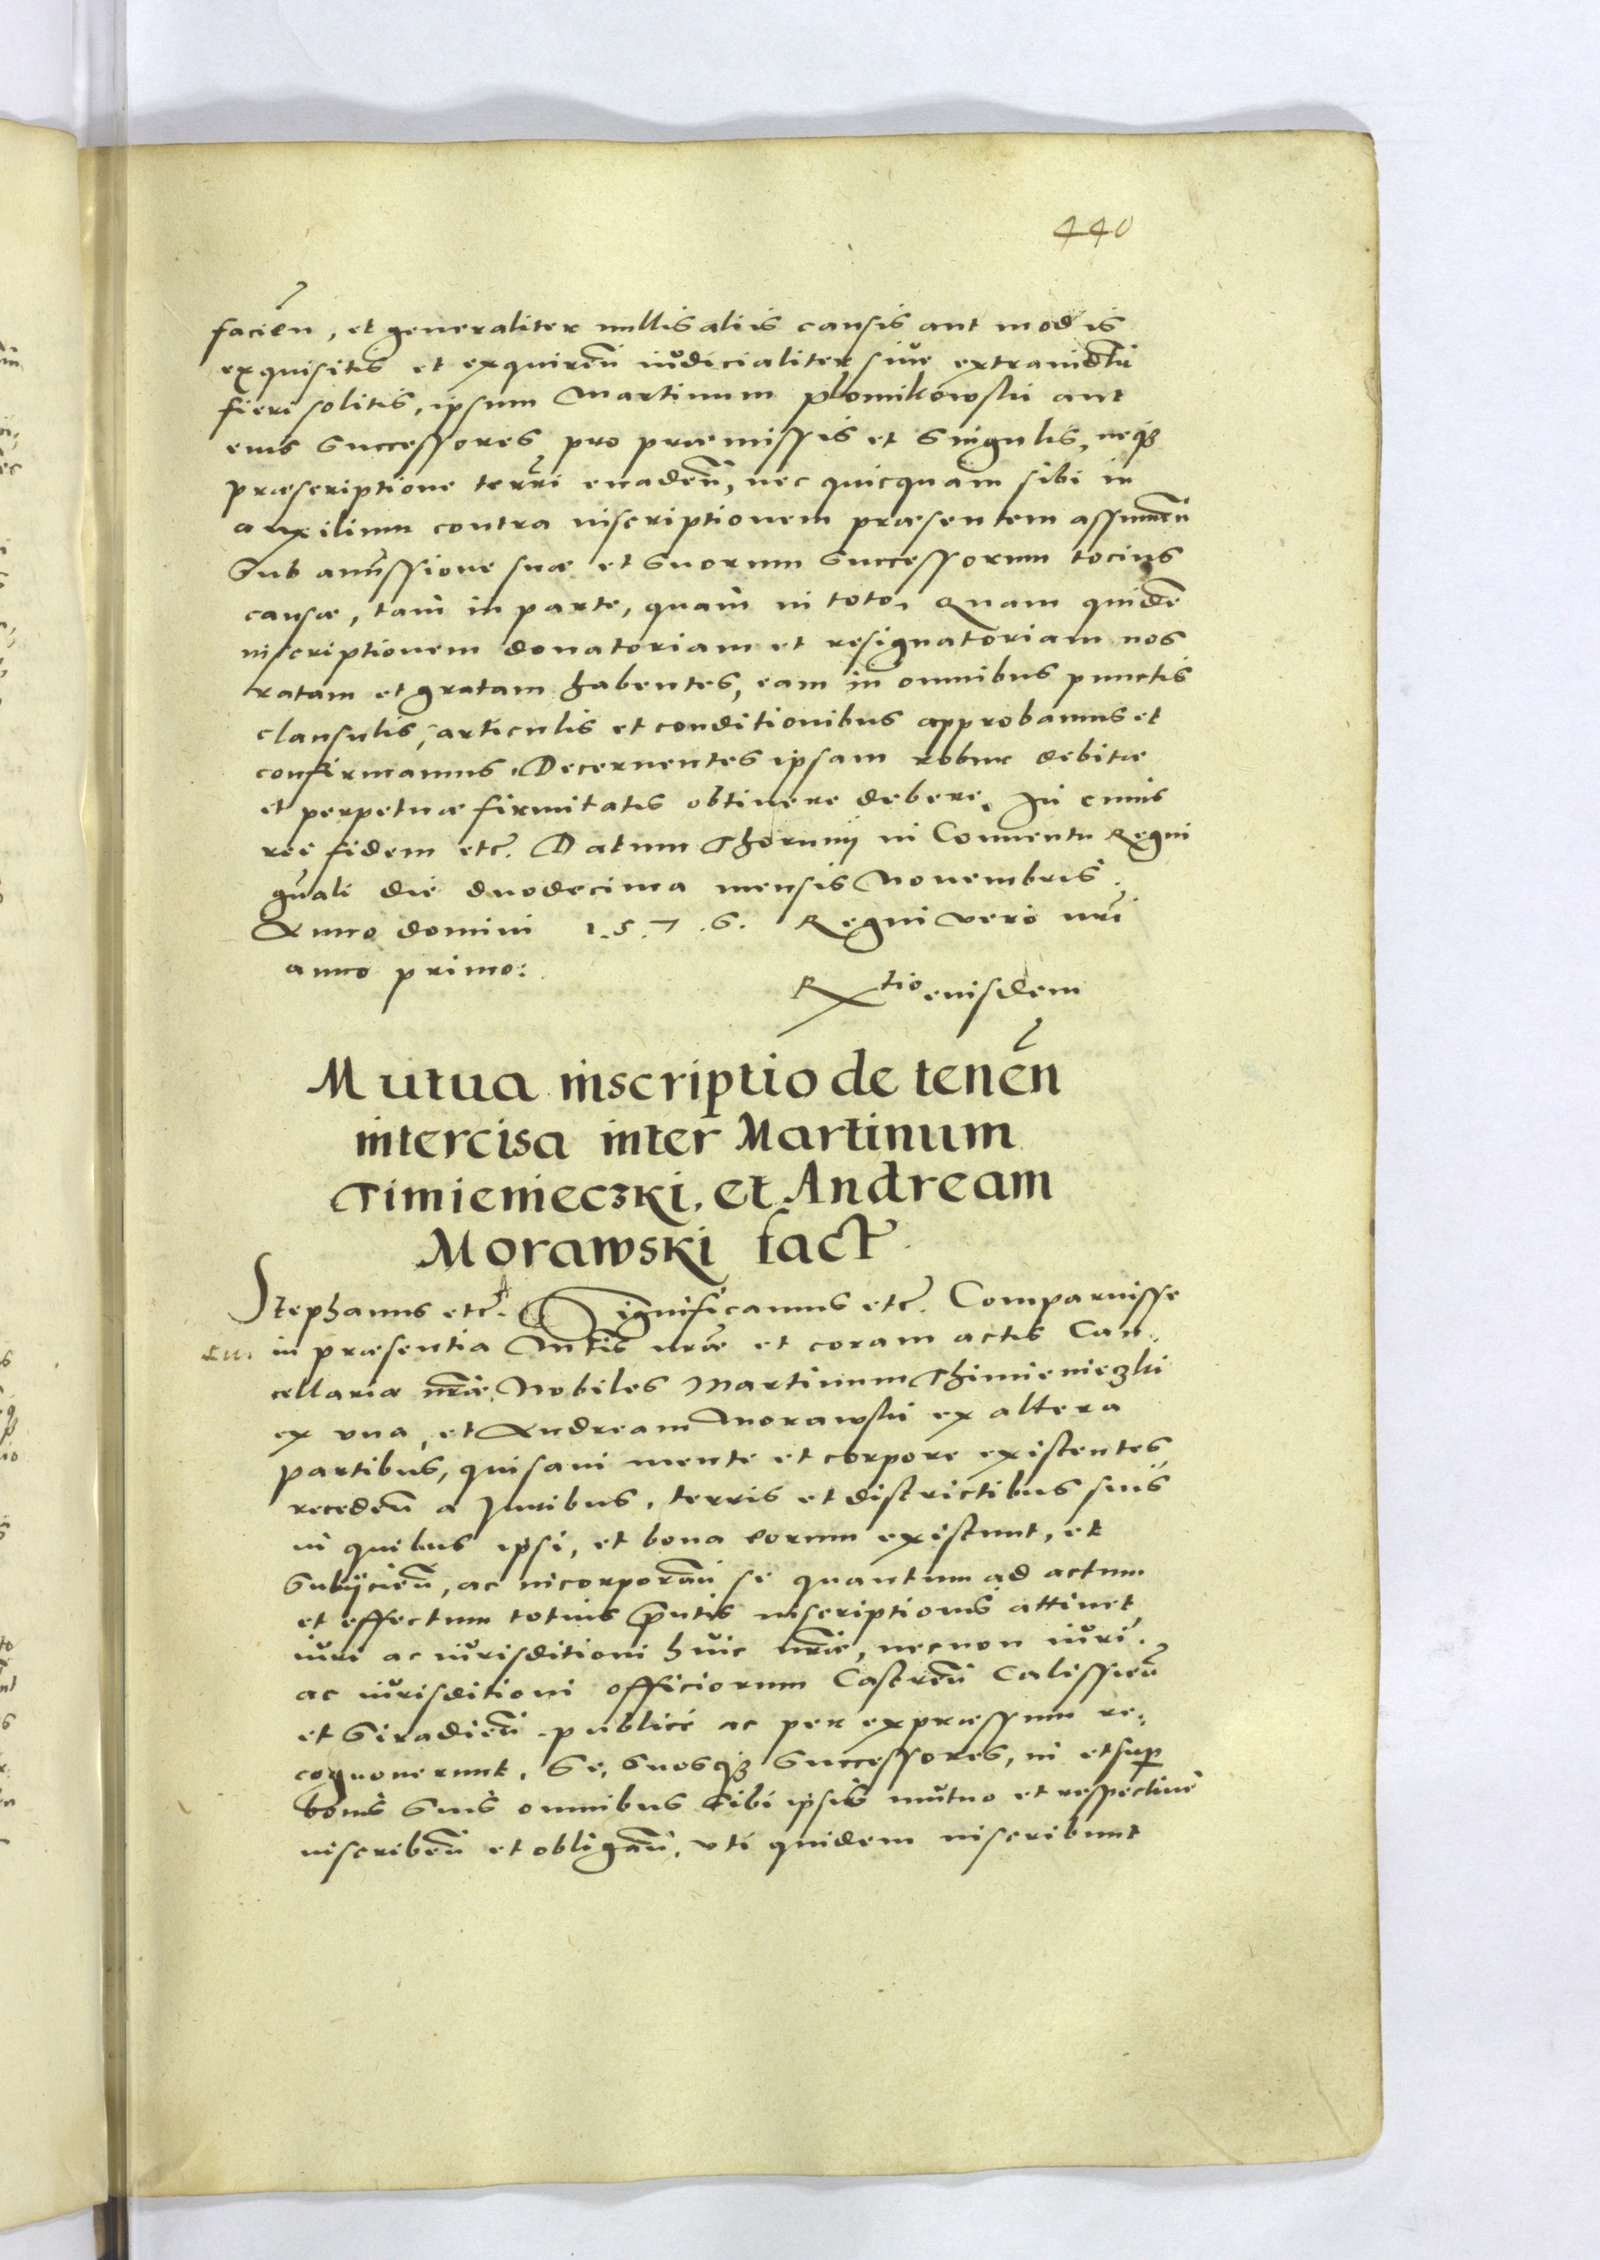 440
facien̄, et generaliter nullis aliis causis aut modis
exquisitis et exquiren̄ iudicialiter siue extraiudicīlr
fieri solitis, ipsum Martinum Plomikowski aut
eius successores pro præmissis et singulis, neq3
præscriptione terrı̄ri euaden̄, nec quicquam sibi in
auxilium contra inscriptionem præsentem assumen̄
Sub amīssione suæ et suorum successorum tocius
causæ, tam in parte, quam in toto, Quam quidē
inscriptionem donatoriam et resignatoriam nos
ratam et gratam habentes, eam in omnibus punctis
clausulis, articulis et conditionibus approbamus et
confirmamus, Decernentes ipsam robur debitæ
et perpetuæ firmitatis obtinere debere. In cuius
rei fidem etc̄. Datum Thorunij in Conuentu Regni
gn̄ali die duodecima mensis Nouembris.
Anno domini 1.5.7.6. Regni vero nr̄i
anno primo:
Rtio eiusdem
Mutua inscriptio de tenēn
intercisa inter Martinum
Timienieczki, et Andream
Morawski fact̄.
Stephanus etc̄. Significamus etc̄. Comparuisse
in præsentia Mtīs nr̄æ et coram actis Can-
cellariæ nr̄æ, Nobiles Martinum Thimienieczki
ex vna, et Andream Morawski ex altera
partibus, qui sani mente et corpore existentes,
receden̄ a Iuribus, terris et districtibus suis
in quibus ipsi, et bona eorum existunt, et
Subijcien̄, ac incorporan̄ se quantum ad actum
et effectum totius p̄ntis inscriptionis attinet,
iuri ac iurisditioni huic nr̄æ, necnon iuri.
ac iurisditioni officiorum Castren̄ Calissien̄
et Siradien̄ publicè ac per expressum re-
cognouerunt. Se, suosq3 successores, in et sup̄
bonis suis omnibus sibi ipsis mutuo et respectiuè
inscriben̄ et obligan̄, vti quidem inscribunt